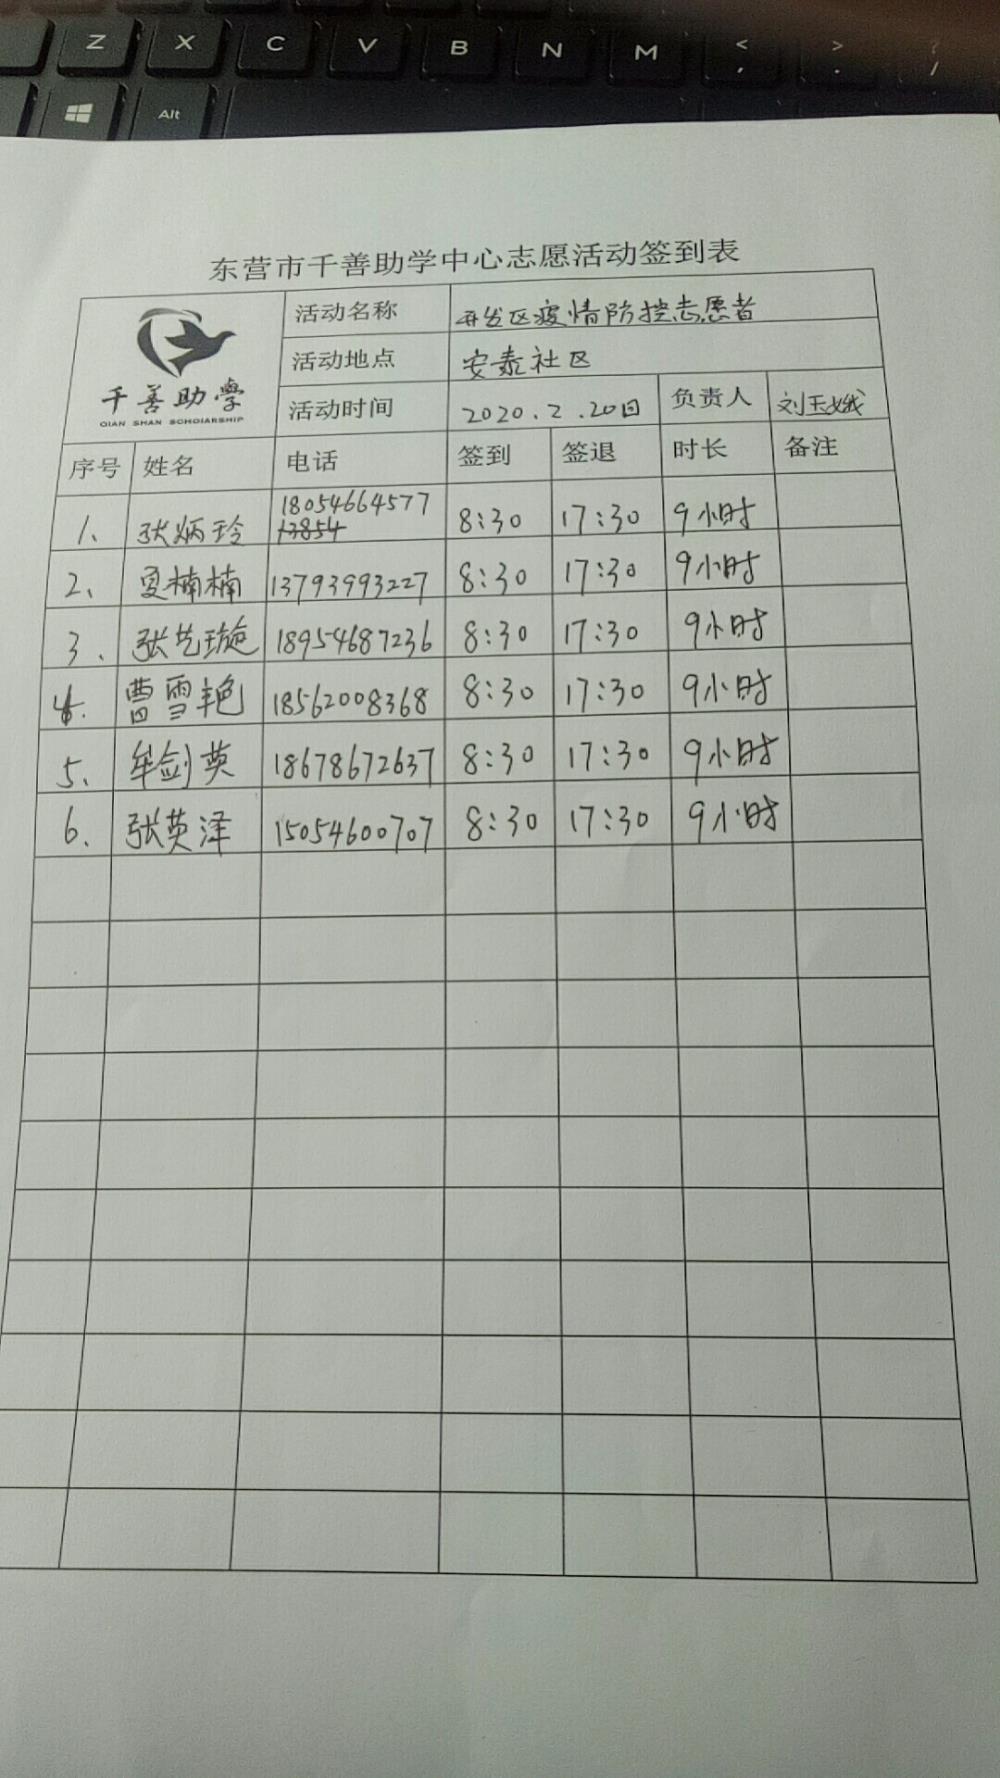 Z X C V B N M < , > . ? /
Alt
东营市千善助学中心志愿活动签到表
千善助学
QIAN SHAN SCHOIARSHIP
活动名称 开发区疫情防控志愿者
活动地点 安泰社区
活动时间 2020.2.20日 负责人 刘玉娥
序号 姓名 电话 签到 签退 时长 备注
1、 张炳玲 18054664577 8:30 17:30 9小时
13854
2、 夏楠楠 13793993227 8:30 17:30 9小时
3. 张艺璇 18954687236 8:30 17:30 9小时
4. 曹雪艳 18562008368 8:30 17:30 9小时
5、 牟剑英 18678672637 8:30 17:30 9小时
6. 张英泽 15054600707 8:30 17:30 9小时